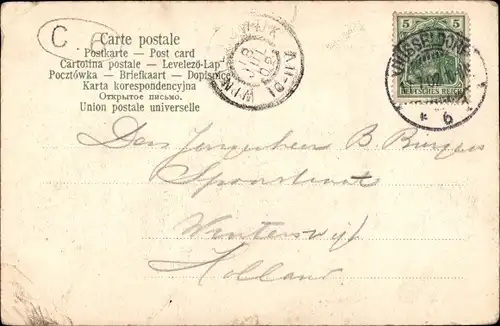 C
Carte postale
Postkarte — Post card
Cartolina postale — Levelező-Lap
Pocztówka — Briefkaart — Dopisnice
Karta korespondencyjna
Открытое письмо.
Union postale universelle
5 5
DEUTSCHES REICH
DÜSSELDORF
* 6
Den B. Burgers
Spoorstraat
Winterswijk
Holland